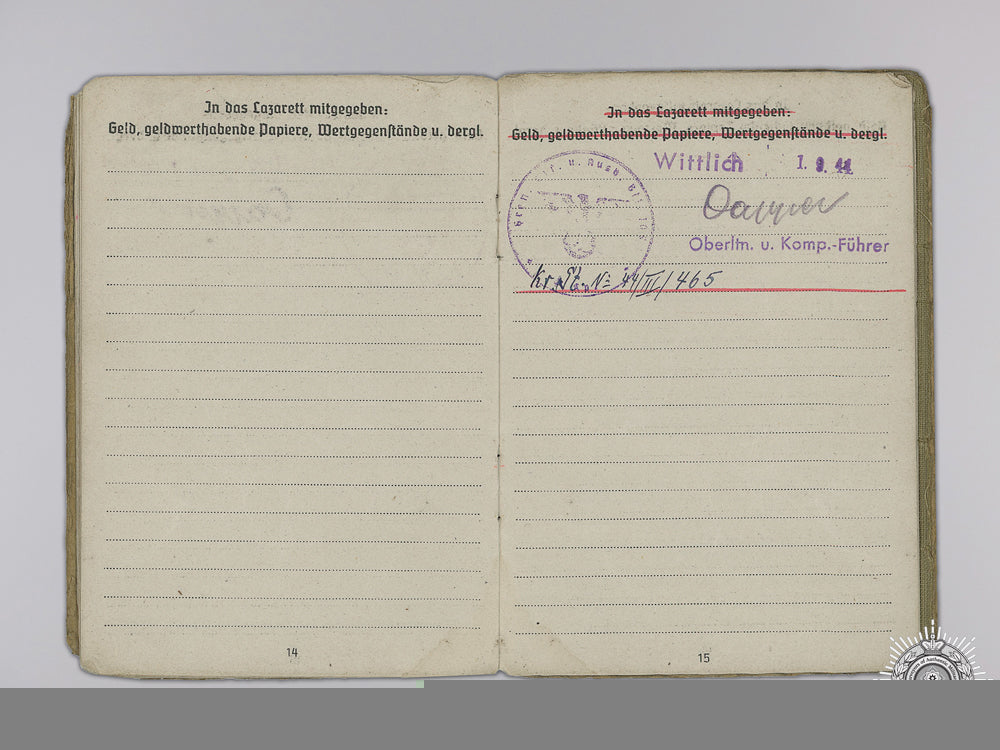 In das Lazarett mitgegeben:
Geld, geldwerthabende Papiere, Wertgegenstände u. dergl.
14
In das Lazarett mitgegeben:
Geld, geldwerthabende Papiere, Wertgegenstände u. dergl.
Wittlich 1. 9. 44
Oberltn. u. Komp.-Führer
Kr. St. Nº 44/III/465
15